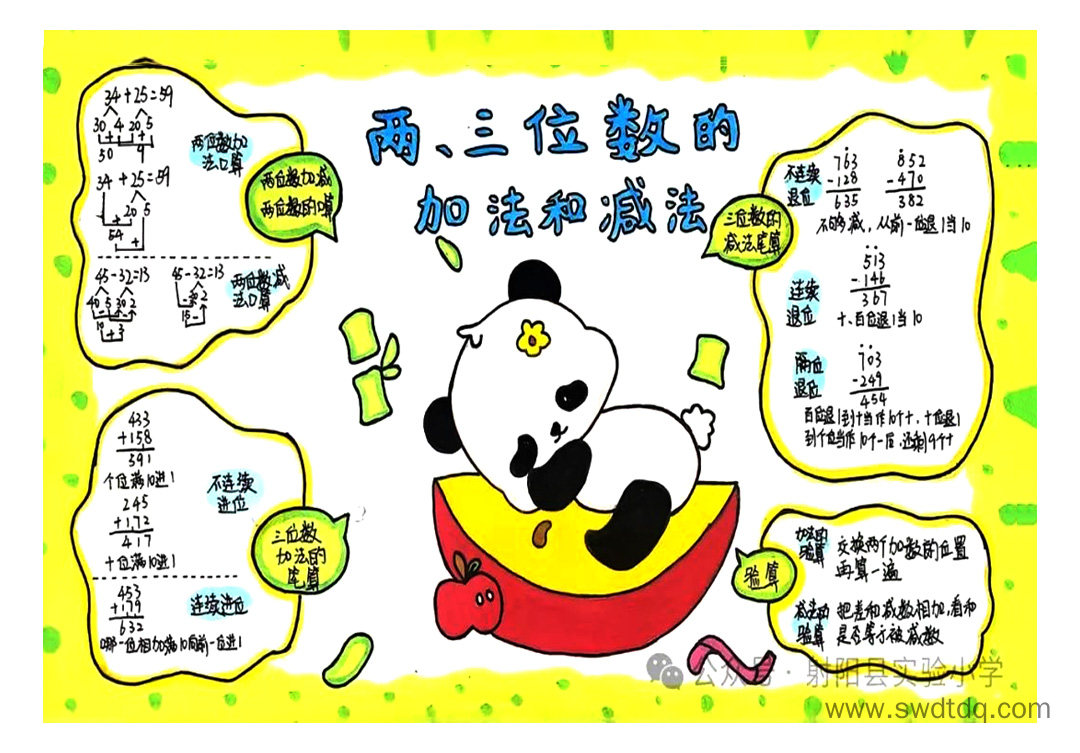 两、三位数的
加法和减法
34+25=59
30 4 20 5
+ +
50 9
两位数加
法口算
34+25=59
20 5
+
54
+
两位数加减
两位数的口算
45-32=13
45-32=13
40 5 30 2
30 2
两位数减
法口算
15-
+3
433
+158
591
个位满10进1
不连续
进位
245
+172
417
十位满10进1
三位数
加法的
笔算
453
+179
632
连续进位
哪一位相加满10向前一位进1
三位数的
减法笔算
不连续
退位
763
-128
635
852
-470
382
不够减，从前一位退1当10
连续
退位
513
-146
367
十、百位退1当10
隔位
退位
703
-249
454
百位退1到十当作10个十，十位退1
到个位当作10个一后，还剩9个十
验算
加法的
验算
交换两个加数的位置
再算一遍
减法的
验算
把差和减数相加，看和
是否等于被减数
公众号·射阳县实验小学
www.swdtdq.com